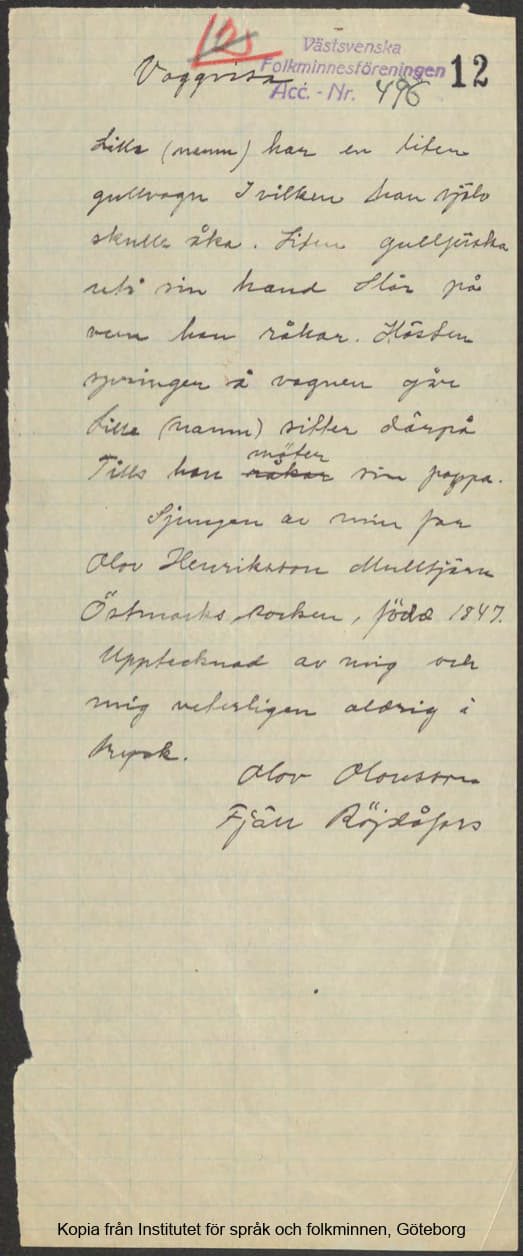 12
Västsvenska
Folkminnesföreningen
12
Vaggvisa
Acc. - Nr. 496
Lille (namn) har en liten
gullvagn I vilken han själv
skulle åka. Liten gullpiska
uti sin hand Slår på
vem han råkar. Hästen
springer å vagnen går
Lille (namn) sitter därpå
möter
Tills han råkar sin pappa.
Sjungen av min far
Olov Henriksson Mulltjärn
Östmarks socken, född 1847.
Upptecknad av mig och
mig veterligen aldrig i
tryck.
Olov Olovsson
Fjäll Röjdåfors
Kopia från Institutet för språk och folkminnen, Göteborg